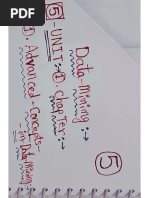 ⑤
Data-Mining :→
5-UNIT:→①-chapTer:→
①. Advanced-Concepts-
-in Data Mining